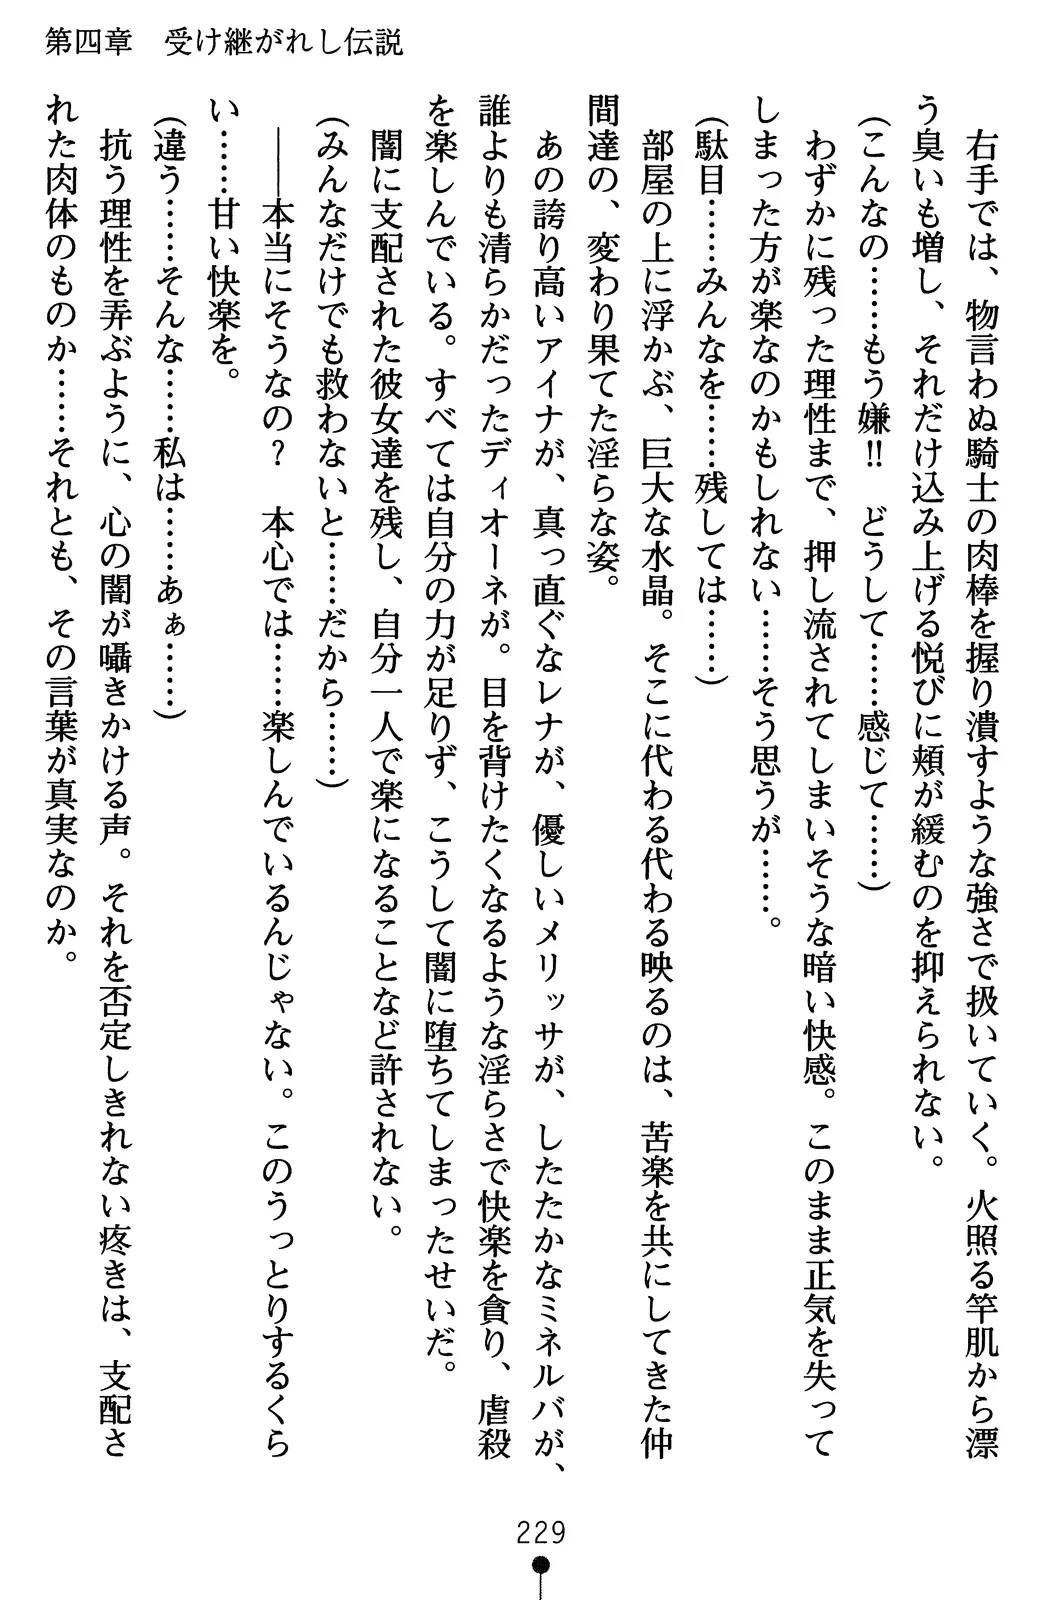 第四章　受け継がれし伝説
　右手では、物言わぬ騎士の肉棒を握り潰すような強さで扱いていく。火照る竿肌から漂
う臭いも増し、それだけ込み上げる悦びに頬が緩むのを抑えられない。
（こんなの……もう嫌‼　どうして……感じて……）
　わずかに残った理性まで、押し流されてしまいそうな暗い快感。このまま正気を失って
しまった方が楽なのかもしれない……そう思うが……。
（駄目……みんなを……残しては……）
　部屋の上に浮かぶ、巨大な水晶。そこに代わる代わる映るのは、苦楽を共にしてきた仲
間達の、変わり果てた淫らな姿。
　あの誇り高いアイナが、真っ直ぐなレナが、優しいメリッサが、したたかなミネルバが、
誰よりも清らかだったディオーネが。目を背けたくなるような淫らさで快楽を貪り、虐殺
を楽しんでいる。すべては自分の力が足りず、こうして闇に堕ちてしまったせいだ。
　闇に支配された彼女達を残し、自分一人で楽になることなど許されない。
（みんなだけでも救わないと……だから……）
　――本当にそうなの？　本心では……楽しんでいるんじゃない。このうっとりするくら
い……甘い快楽を。
（違う……そんな……私は……あぁ……）
　抗う理性を弄ぶように、心の闇が囁きかける声。それを否定しきれない疼きは、支配さ
れた肉体のものか……それとも、その言葉が真実なのか。
229